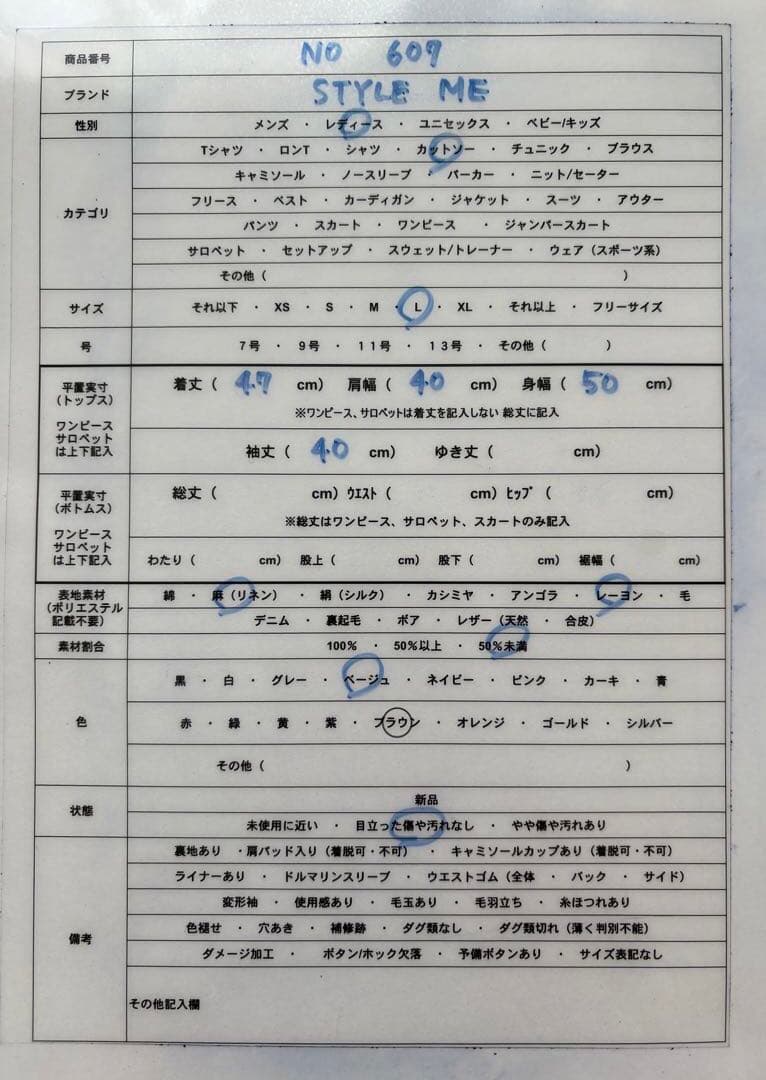 商品番号 NO 609
ブランド STYLE ME
性別 メンズ ・ レディース ・ ユニセックス ・ ベビー/キッズ
カテゴリ
Tシャツ ・ ロンT ・ シャツ ・ カットソー ・ チュニック ・ ブラウス
キャミソール ・ ノースリーブ ・ パーカー ・ ニット/セーター
フリース ・ ベスト ・ カーディガン ・ ジャケット ・ スーツ ・ アウター
パンツ ・ スカート ・ ワンピース ・ ジャンパースカート
サロペット ・ セットアップ ・ スウェット/トレーナー ・ ウェア（スポーツ系）
その他（ ）
サイズ それ以下 ・ XS ・ S ・ M ・ L ・ XL ・ それ以上 ・ フリーサイズ
号 7号 ・ 9号 ・ 11号 ・ 13号 ・ その他（ ）
平置実寸
（トップス）
ワンピース
サロペット
は上下記入
着丈（ 47 cm） 肩幅（ 40 cm） 身幅（ 50 cm）
※ワンピース、サロペットは着丈を記入しない 総丈に記入
袖丈（ 40 cm） ゆき丈（ cm）
平置実寸
（ボトムス）
ワンピース
サロペット
は上下記入
総丈（ cm）ｳｴｽﾄ（ cm）ﾋｯﾌﾟ（ cm）
※総丈はワンピース、サロペット、スカートのみ記入
わたり（ cm） 股上（ cm） 股下（ cm） 裾幅（ cm）
表地素材
（ポリエステル
記載不要）
綿 ・ 麻（リネン） ・ 絹（シルク） ・ カシミヤ ・ アンゴラ ・ レーヨン ・ 毛
デニム ・ 裏起毛 ・ ボア ・ レザー（天然 ・ 合皮）
素材割合 100％ ・ 50％以上 ・ 50％未満
色
黒 ・ 白 ・ グレー ・ ベージュ ・ ネイビー ・ ピンク ・ カーキ ・ 青
赤 ・ 緑 ・ 黄 ・ 紫 ・ ブラウン ・ オレンジ ・ ゴールド ・ シルバー
その他（ ）
状態
新品
未使用に近い ・ 目立った傷や汚れなし ・ やや傷や汚れあり
備考
裏地あり ・肩パッド入り（着脱可・不可） ・ キャミソールカップあり（着脱可・不可）
ライナーあり ・ ドルマリンスリーブ ・ ウエストゴム（全体 ・ バック ・ サイド）
変形袖 ・ 使用感あり ・ 毛玉あり ・ 毛羽立ち ・ 糸ほつれあり
色褪せ ・ 穴あき ・ 補修跡 ・ タグ類なし ・ タグ類切れ（薄く判別不能）
ダメージ加工 ・ ボタン/ホック欠落 ・ 予備ボタンあり ・ サイズ表記なし
その他記入欄